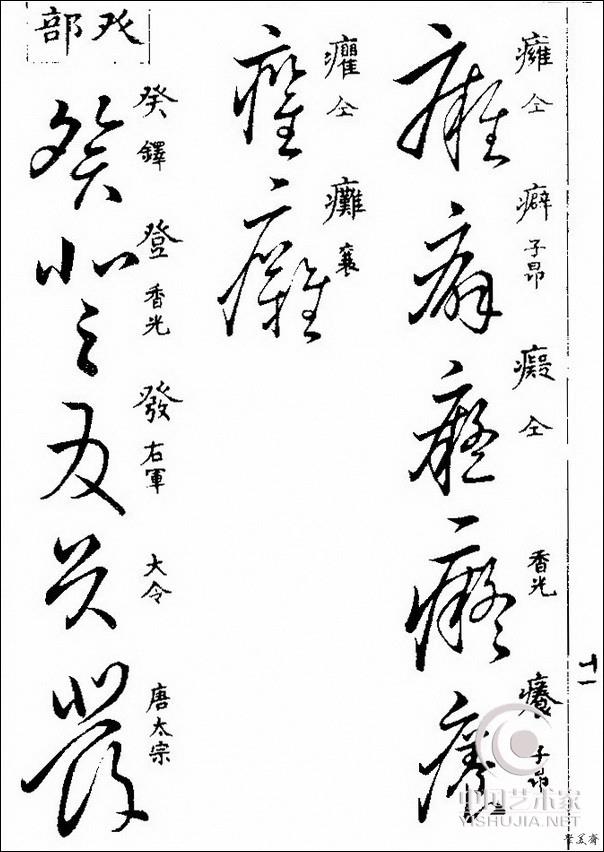 癕 仝
癖 子昂
癡 仝
香光
癢 子昂
癯 仝
癱 襄
癶部
癸 鐸
登 香光
發 右軍
大令
唐太宗
十一
中国艺术家
YISHUJIA.NET